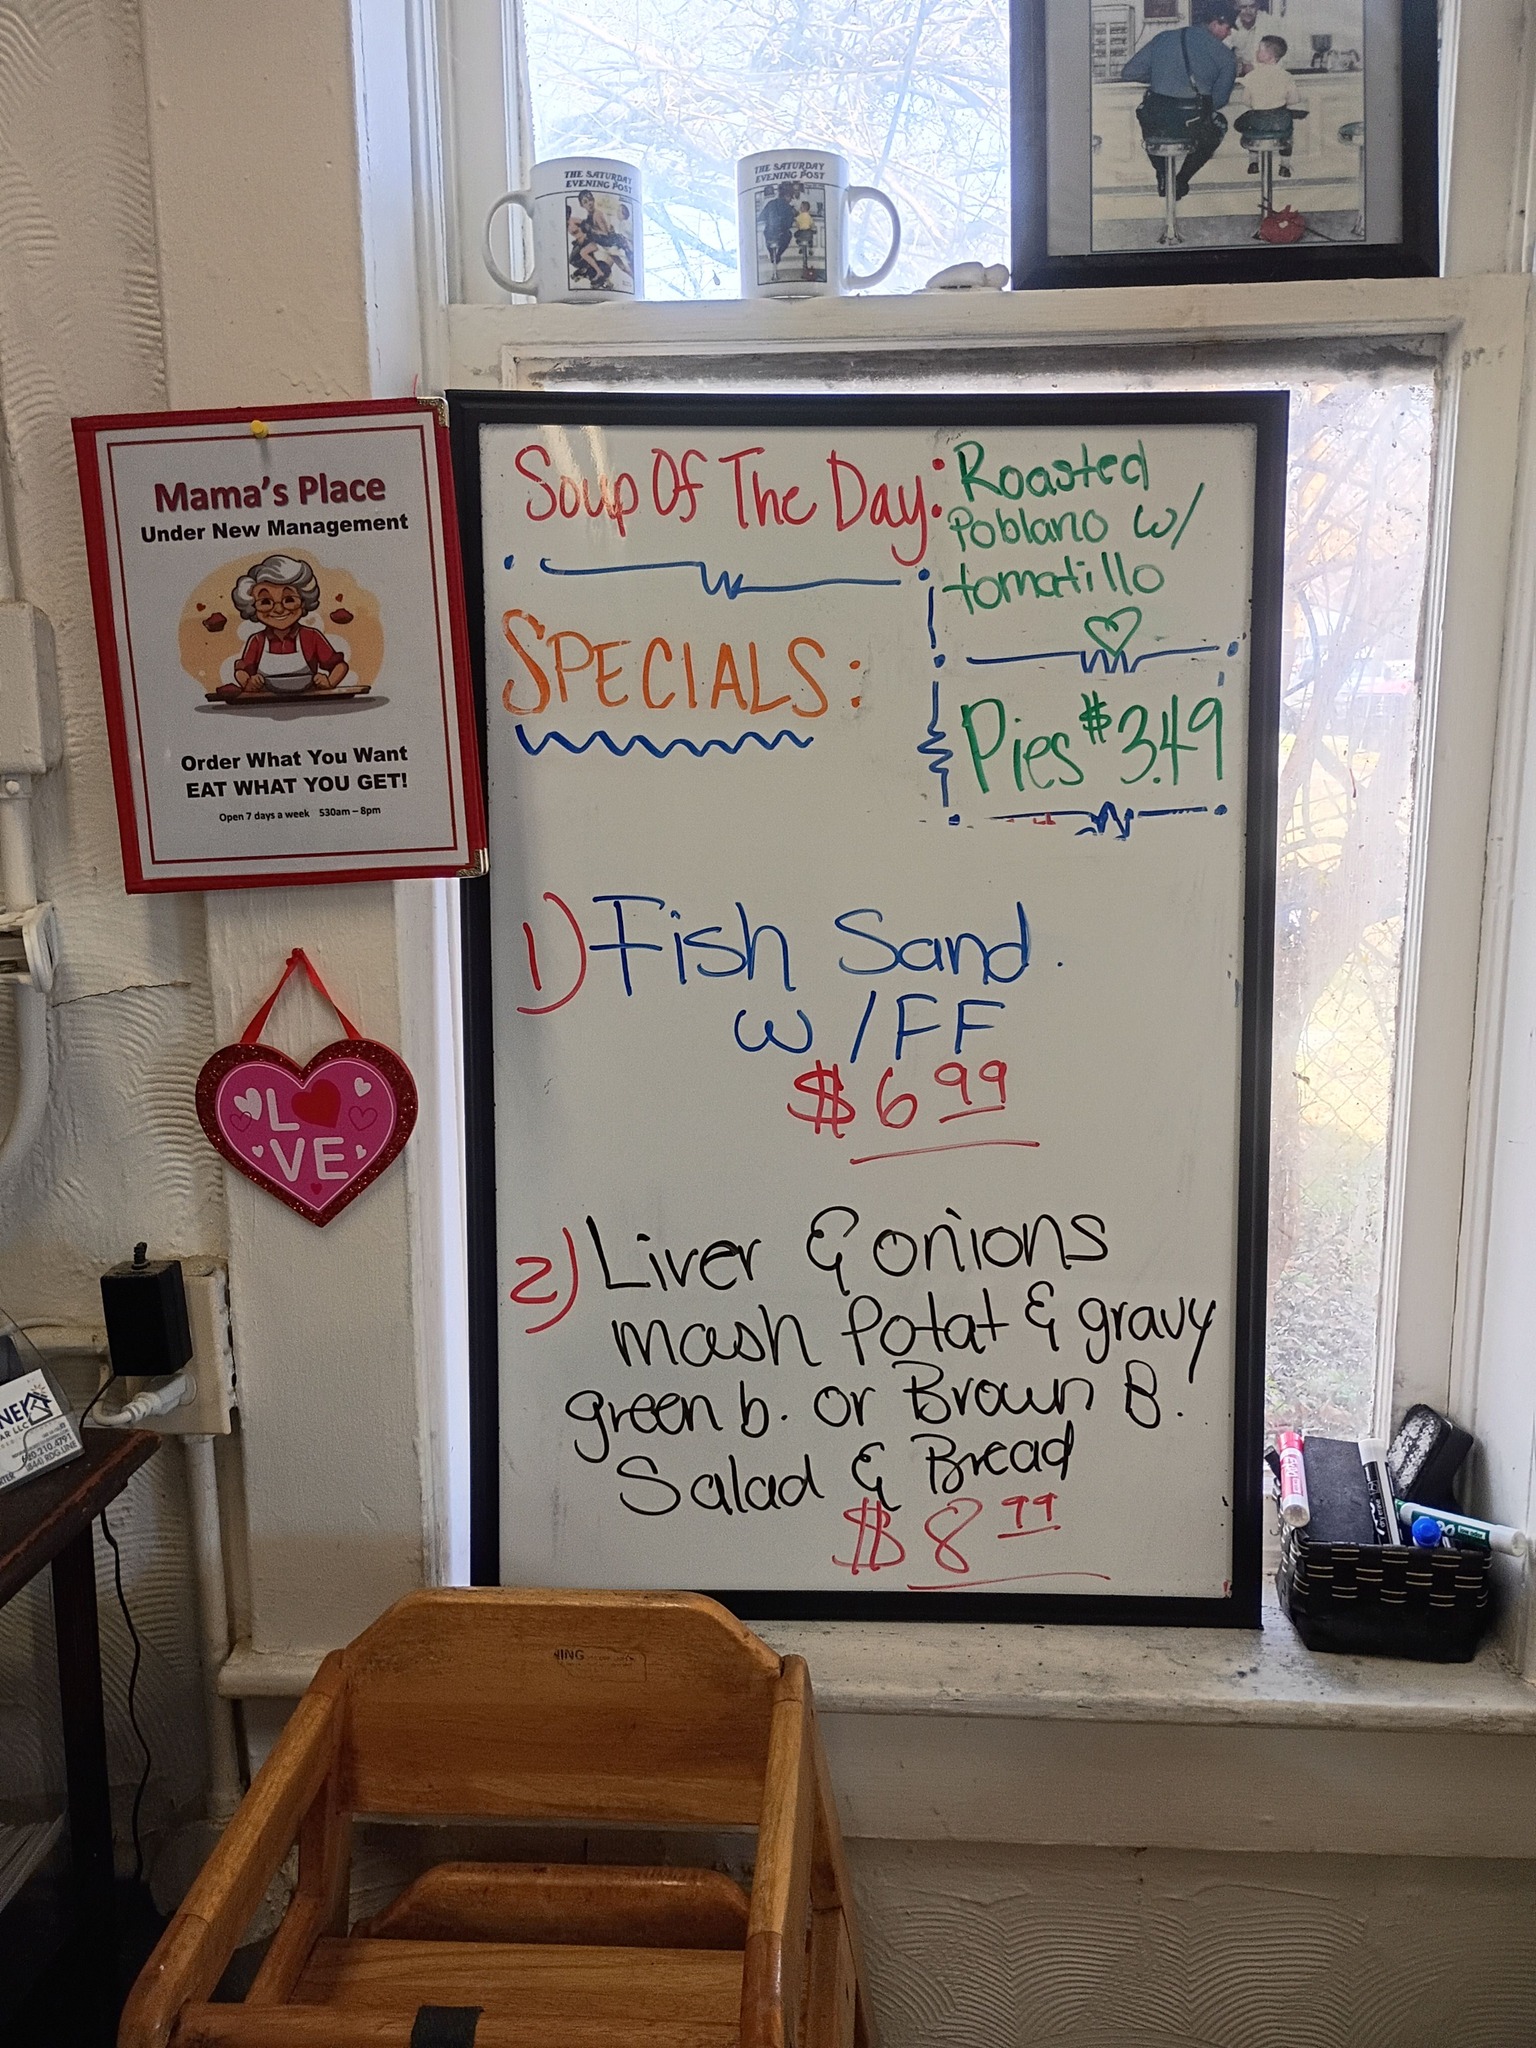 THE SATURDAY
EVENING POST
THE SATURDAY
EVENING POST
Mama's Place
Under New Management
Order What You Want
EAT WHAT YOU GET!
Open 7 days a week 530am – 8pm
LOVE
Soup Of The Day:
Roasted
Poblano w/
tomatillo
SPECIALS:
Pies $3.49
1) Fish Sand.
w/FF
$6.99
2) Liver & onions
mash Potat & gravy
green b. or Brown B.
Salad & Bread
$8.99
EXPO